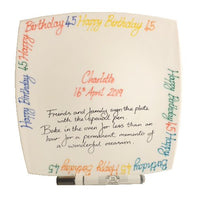 Birthday 45 Happy Birthday 45
Happy Birthday 45
Happy Birthday 45
Charlotte
16th April 2019
Friends and family sign the plate
with the special pen
Bake in the oven for less than an
hour for a permanent memento of
a wonderful occasion
Birthday 45 Happy Birthday